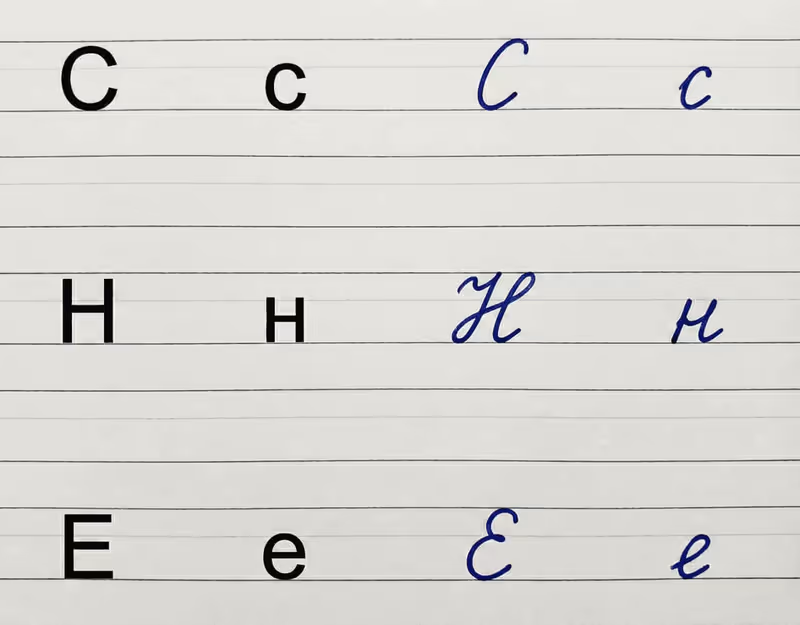 С с С с
Н н Н н
Е е Е е